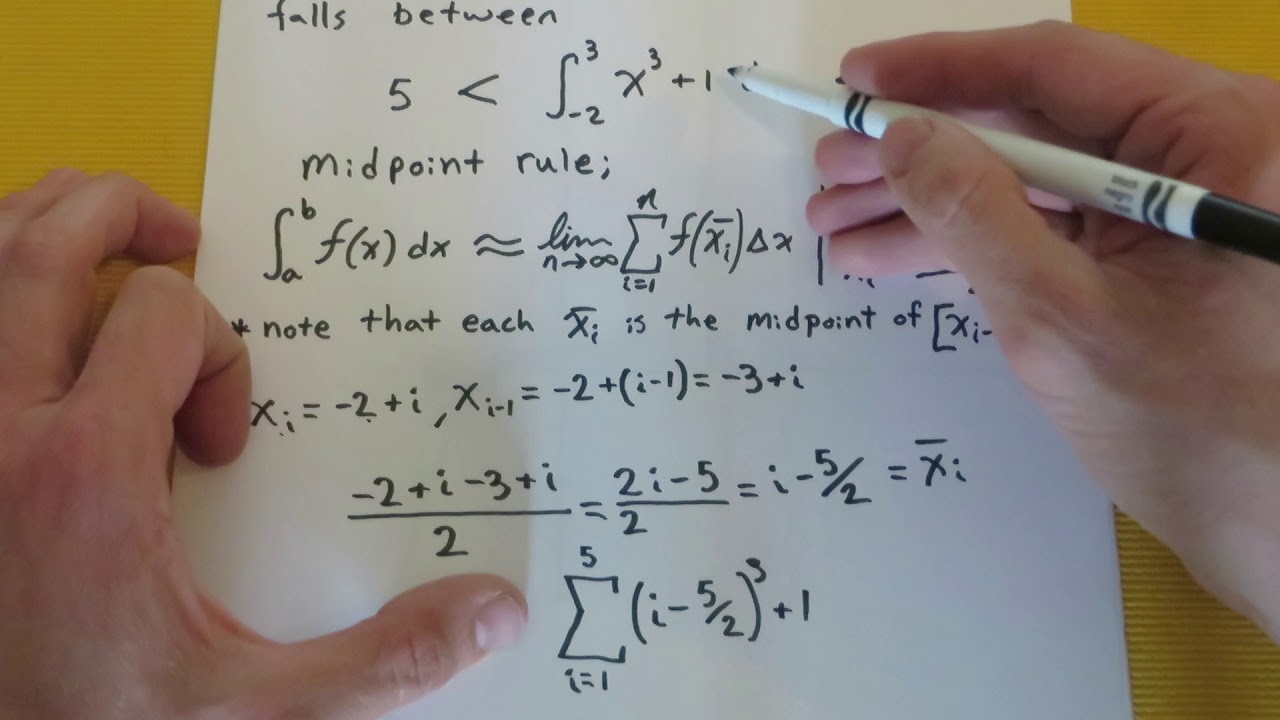 falls between
5 < ∫_{-2}^{3} x³ + 1
midpoint rule;
∫_a^b f(x) dx ≈ lim_{n→∞} ∑_{i=1}^{n} f(x̄_i) Δx |
* note that each x̄_i is the midpoint of [x_{i-
x_i = -2 + i , x_{i-1} = -2 + (i-1) = -3 + i
(-2 + i - 3 + i)/2 = (2i - 5)/2 = i - 5/2 = x̄_i
∑_{i=1}^{5} (i - 5/2)³ + 1